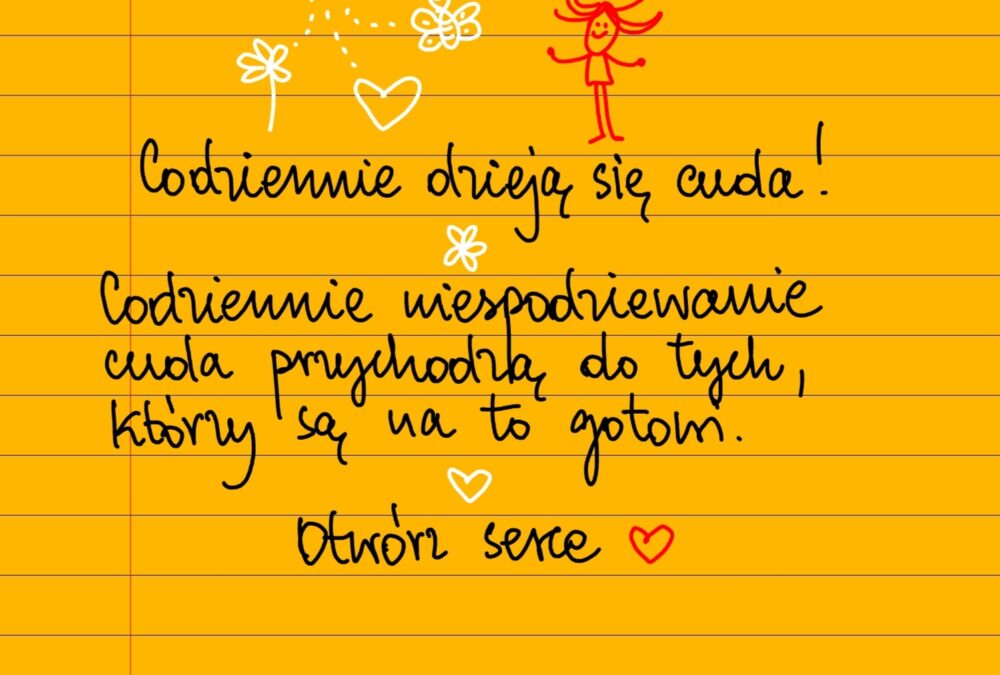 Codziennie dzieją się cuda!
Codziennie niespodziewanie
cuda przychodzą do tych,
którzy są na to gotowi.
Otwórz serce